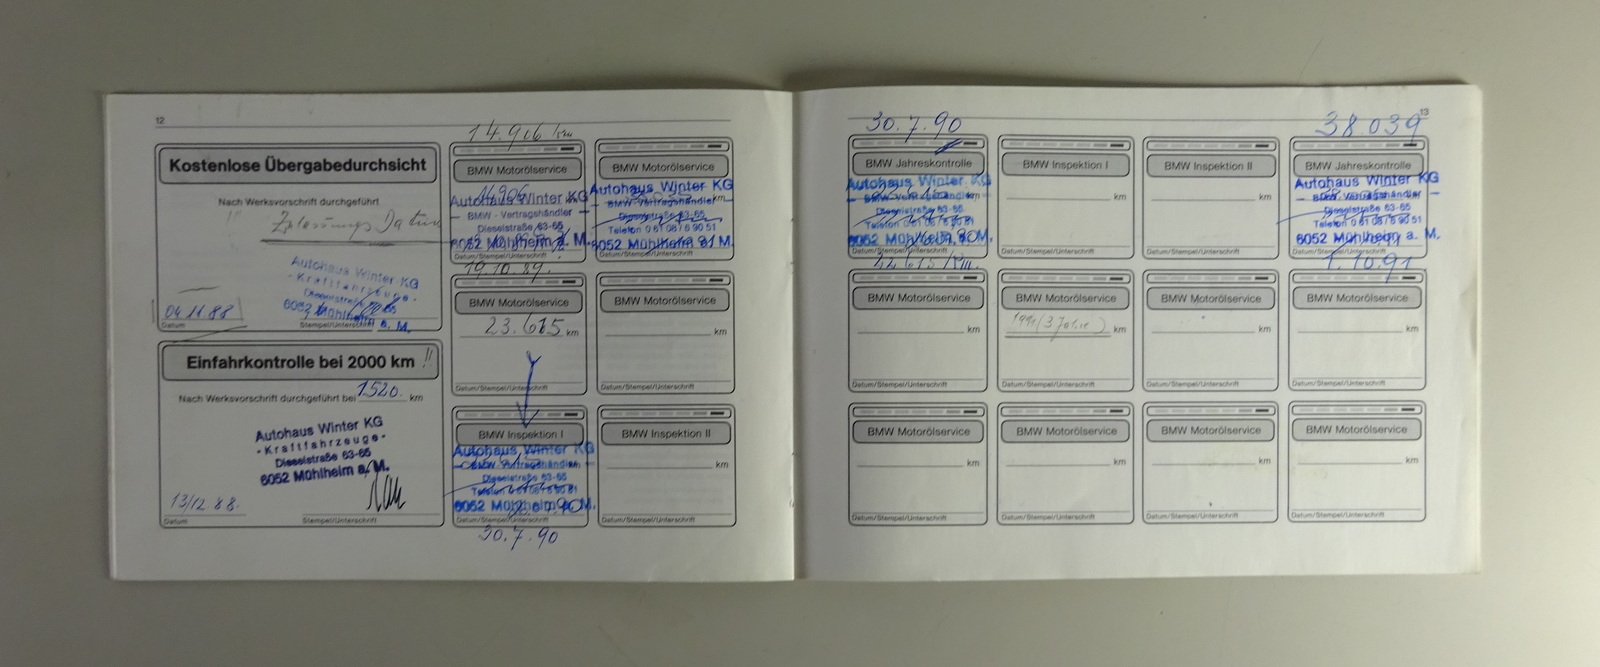 12
Kostenlose Übergabedurchsicht
Nach Werksvorschrift durchgeführt
Zulassungs Datum
Autohaus Winter KG
- Kraftfahrzeuge -
Dieselstraße 63-65
6052 Mühlheim a. M.
04.11.88
Datum
Stempel/Unterschrift
Einfahrkontrolle bei 2000 km !!
Nach Werksvorschrift durchgeführt bei 1520. km
Autohaus Winter KG
- Kraftfahrzeuge -
Dieselstraße 63-65
6052 Mühlheim a. M.
13/12 88.
Datum
Stempel/Unterschrift
14.906 km
BMW Motorölservice
14906
Autohaus Winter KG
- BMW - Vertragshändler -
Dieselstraße 63-65
6052 Mühlheim a. M.
Datum/Stempel/Unterschrift
19.10.89.
BMW Motorölservice
km
Autohaus Winter KG
- BMW-Vertragshändler -
Dieselstraße 63-65
Telefon 0 61 08 / 6 90 51
6052 Mühlheim a. M.
Datum/Stempel/Unterschrift
BMW Motorölservice
23.615 km
Datum/Stempel/Unterschrift
BMW Motorölservice
km
Datum/Stempel/Unterschrift
BMW Inspektion I
Autohaus Winter KG
- BMW-Vertragshändler -
Dieselstraße 63-65
6052 Mühlheim a. M.
Datum/Stempel/Unterschrift
30.7.90
BMW Inspektion II
km
Datum/Stempel/Unterschrift
13
30.7.90
BMW Jahreskontrolle
km
Autohaus Winter KG
- BMW-Vertragshändler -
Dieselstraße 63-65
6052 Mühlheim a. M.
Datum/Stempel/Unterschrift
BMW Inspektion I
km
Datum/Stempel/Unterschrift
BMW Inspektion II
km
Datum/Stempel/Unterschrift
38.039
BMW Jahreskontrolle
Autohaus Winter KG
- BMW-Vertragshändler -
Dieselstraße 63-65
Telefon 0 61 08 / 6 90 51
6052 Mühlheim a. M.
Datum/Stempel/Unterschrift
1.10.91
BMW Motorölservice
km
Datum/Stempel/Unterschrift
BMW Motorölservice
1991 (3 Jahre) km
Datum/Stempel/Unterschrift
BMW Motorölservice
km
Datum/Stempel/Unterschrift
BMW Motorölservice
km
Datum/Stempel/Unterschrift
BMW Motorölservice
km
Datum/Stempel/Unterschrift
BMW Motorölservice
km
Datum/Stempel/Unterschrift
BMW Motorölservice
km
Datum/Stempel/Unterschrift
BMW Motorölservice
km
Datum/Stempel/Unterschrift